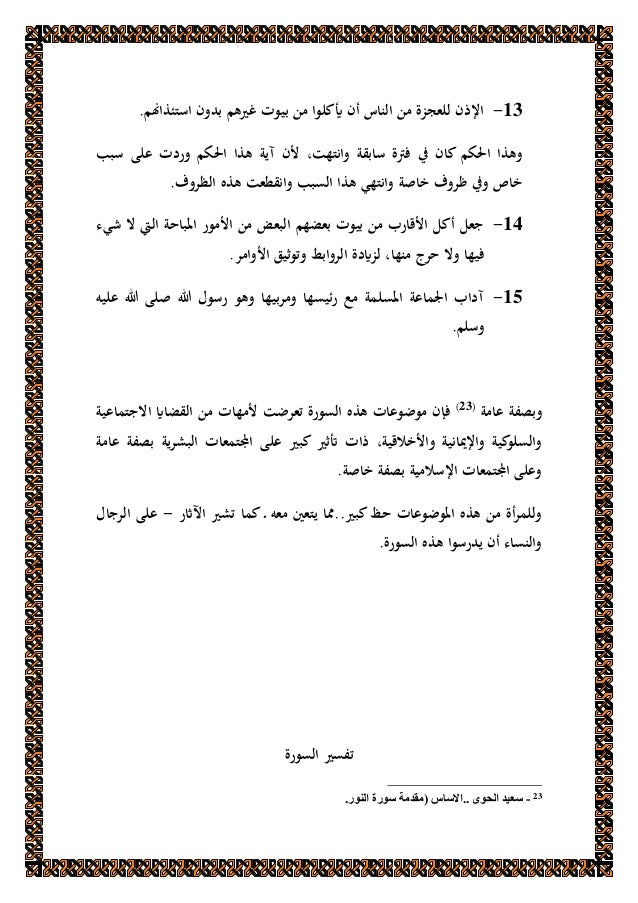 13- الإذن للعجزة من الناس أن يأكلوا من بيوت غيرهم بدون استئذانهم.
وهذا الحكم كان في فترة سابقة وانتهت، لأن آية هذا الحكم وردت على سبب
خاص وفي ظروف خاصة وانتهي هذا السبب وانقطعت هذه الظروف.
14- جعل أكل الأقارب من بيوت بعضهم البعض من الأمور المباحة التي لا شيء
فيها ولا حرج منها، لزيادة الروابط وتوثيق الأوامر.
15- آداب الجماعة المسلمة مع رئيسها ومربيها وهو رسول الله صلى الله عليه
وسلم.
وبصفة عامة (23) فإن موضوعات هذه السورة تعرضت لأمهات من القضايا الاجتماعية
والسلوكية والإيمانية والأخلاقية، ذات تأثير كبير على المجتمعات البشرية بصفة عامة
وعلى المجتمعات الإسلامية بصفة خاصة.
وللمرأة من هذه الموضوعات حظ كبير..مما يتعين معه ـ كما تشير الآثار – على الرجال
والنساء أن يدرسوا هذه السورة.
تفسير السورة
23 - سعيد الحوى ..الاساس (مقدمة سورة النور.